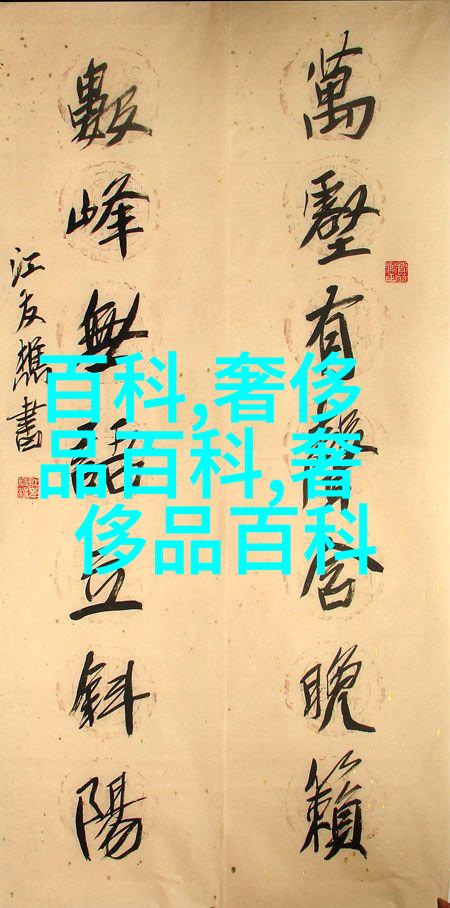 萬壑有聲含晚籟
數峰無語立斜陽
江友樵書
百科,奢侈
品百科,奢
侈品百科